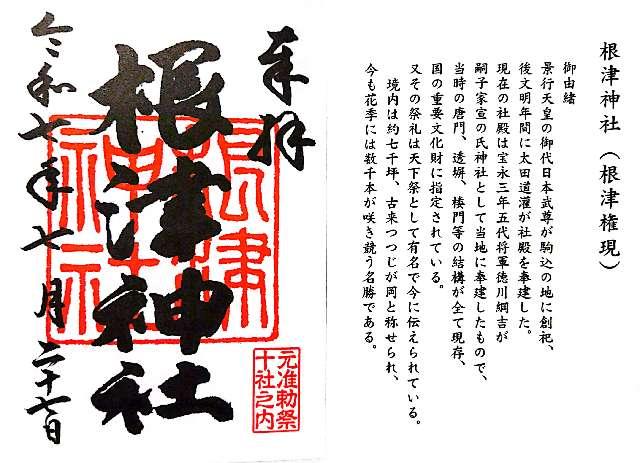 根津神社（根津権現）
御由緒
景行天皇の御代日本武尊が駒込の地に創祀、
後文明年間に太田道灌が社殿を奉建した。
現在の社殿は宝永三年五代将軍徳川綱吉が
嗣子家宣の氏神社として当地に奉建したもので、
当時の唐門、透塀、楼門等の結構が全て現存、
国の重要文化財に指定されている。
又その祭礼は天下祭として有名で今に伝えられている。
境内は約七千坪、古来つつじが岡と称せられ、
今も花季には数千本が咲き競う名勝である。
奉拝
根津神社
根津神社
元准勅祭
十社之内
令和七年七月二十七日